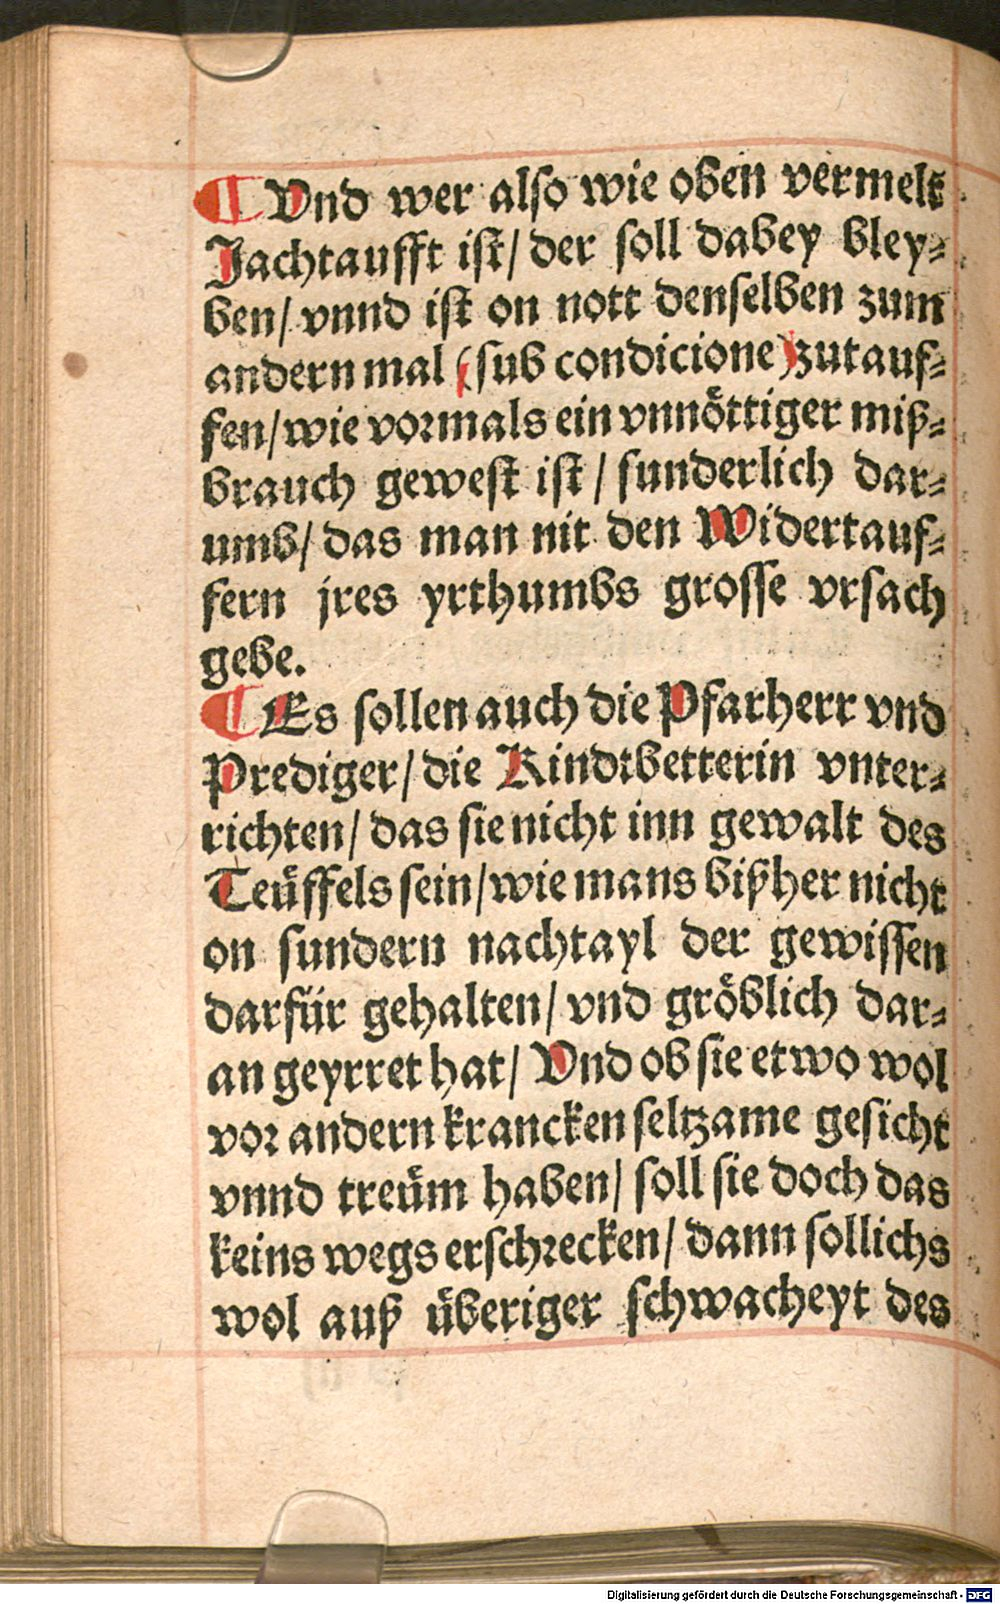 ¶ Vnd wer also wie oben vermelt
Jachtaufft ist/ der soll dabey bley⸗
ben/ vnnd ist on nott denselben zum
andern mal (sub condicione) zutauf⸗
fen/ wie vormals ein vnnöttiger miß⸗
brauch gewest ist/ sunderlich dar⸗
umb/ das man nit den Widertauf⸗
fern jres yrthumbs grosse vrsach
gebe.
¶ Es sollen auch die Pfarherr vnd
Prediger/ die Kindtbetterin vnter⸗
richten/ das sie nicht inn gewalt des
Teüffels sein/ wie mans bißher nicht
on sundern nachtayl der gewissen
darfür gehalten/ vnd gröblich dar⸗
an geyrret hat/ Vnd ob sie etwo wol
vor andern krancken seltzame gesicht
vnnd treüm haben/ soll sie doch das
keins wegs erschrecken/ dann sollichs
wol auß überiger schwacheyt des
Digitalisierung gefördert durch die Deutsche Forschungsgemeinschaft - DFG